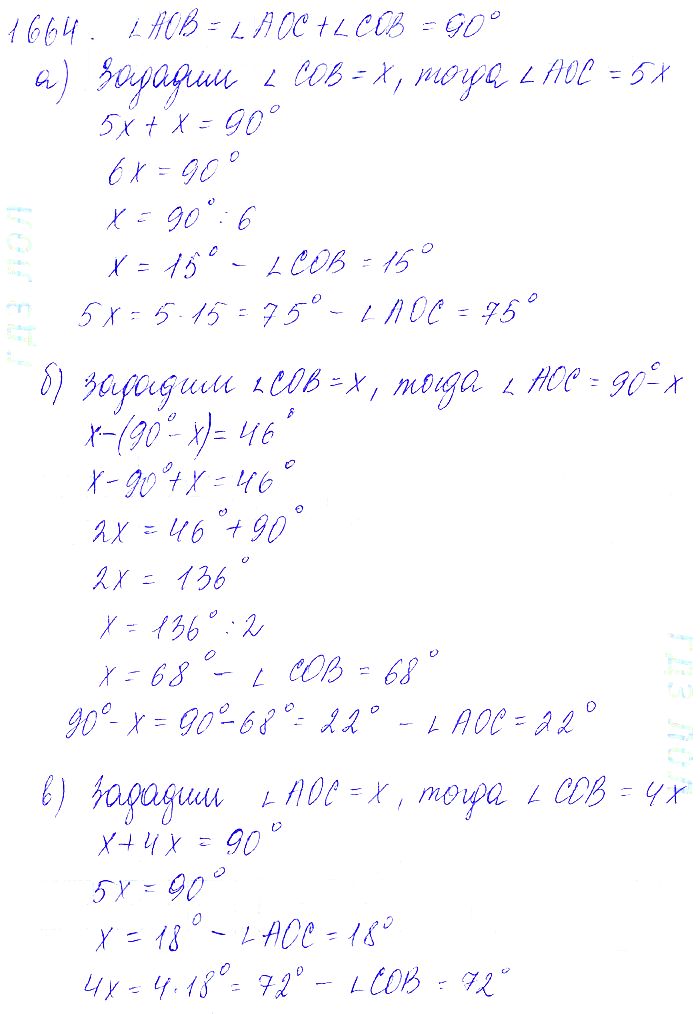 1664. ∠AOB = ∠AOC + ∠COB = 90°
а) Зададим ∠COB = x, тогда ∠AOC = 5x
5x + x = 90°
6x = 90°
x = 90° : 6
x = 15° - ∠COB = 15°
5x = 5·15 = 75° - ∠AOC = 75°
б) Зададим ∠COB = x, тогда ∠AOC = 90° - x
x - (90° - x) = 46°
x - 90° + x = 46°
2x = 46° + 90°
2x = 136°
x = 136° : 2
x = 68° - ∠COB = 68°
90° - x = 90° - 68° = 22° - ∠AOC = 22°
в) Зададим ∠AOC = x, тогда ∠COB = 4x
x + 4x = 90°
5x = 90°
x = 18° - ∠AOC = 18°
4x = 4·18° = 72° - ∠COB = 72°